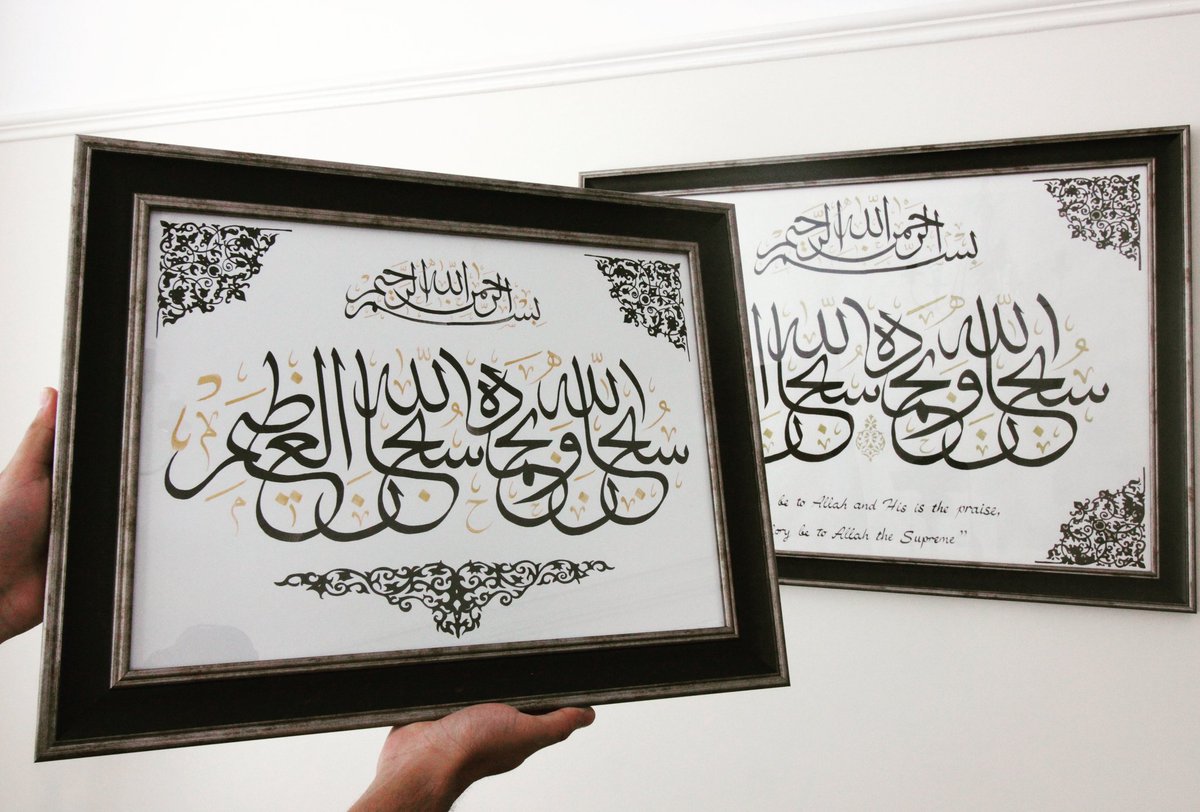 بسم الله الرحمن الرحيم
سبحان الله وبحمده سبحان الله العظيم
بسم الله الرحمن الرحيم
سبحان الله وبحمده سبحان
be to Allah and His is the praise,
be to Allah the Supreme”